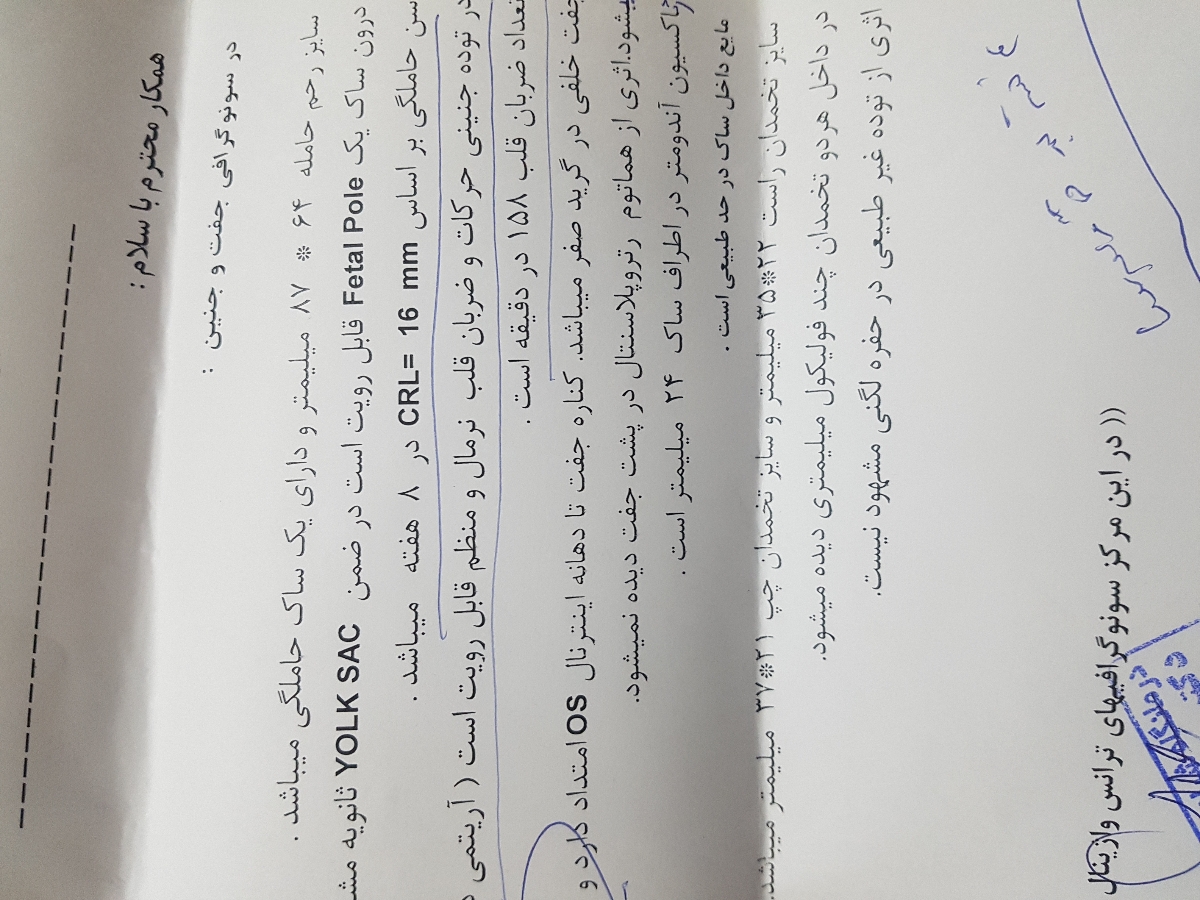 همکار محترم با سلام :
در سونوگرافی جفت و جنین :
سایز رحم حامله ۶۴ * ۸۷ میلیمتر و دارای یک ساک حاملگی میباشد .
درون ساک یک Fetal Pole قابل رویت است در ضمن YOLK SAC ثانویه
سن حاملگی بر اساس CRL= 16 mm در ۸ هفته میباشد .
در توده جنینی حرکات و ضربان قلب نرمال و منظم قابل رویت است ( آریتمی
تعداد ضربان قلب ۱۵۸ در دقیقه است .
جفت خلفی در گرید صفر میباشد. کناره جفت تا دهانه اینترنال OS امتداد دارد و
میشود.اثری از هماتوم رتروپلاسنتال در پشت جفت دیده نمیشود.
راکسیون آندومتر در اطراف ساک ۲۴ میلیمتر است .
مایع داخل ساک در حد طبیعی است .
سایز تخمدان راست ۲۲*۳۵ میلیمتر و سایز تخمدان چپ ۲۱*۳۷ میلیمتر میباشد.
در داخل هردو تخمدان چند فولیکول میلیمتری دیده میشود.
اثری از توده غیر طبیعی در حفره لگنی مشهود نیست.
(( در این مرکز سونوگرافیهای ترانس واژینال